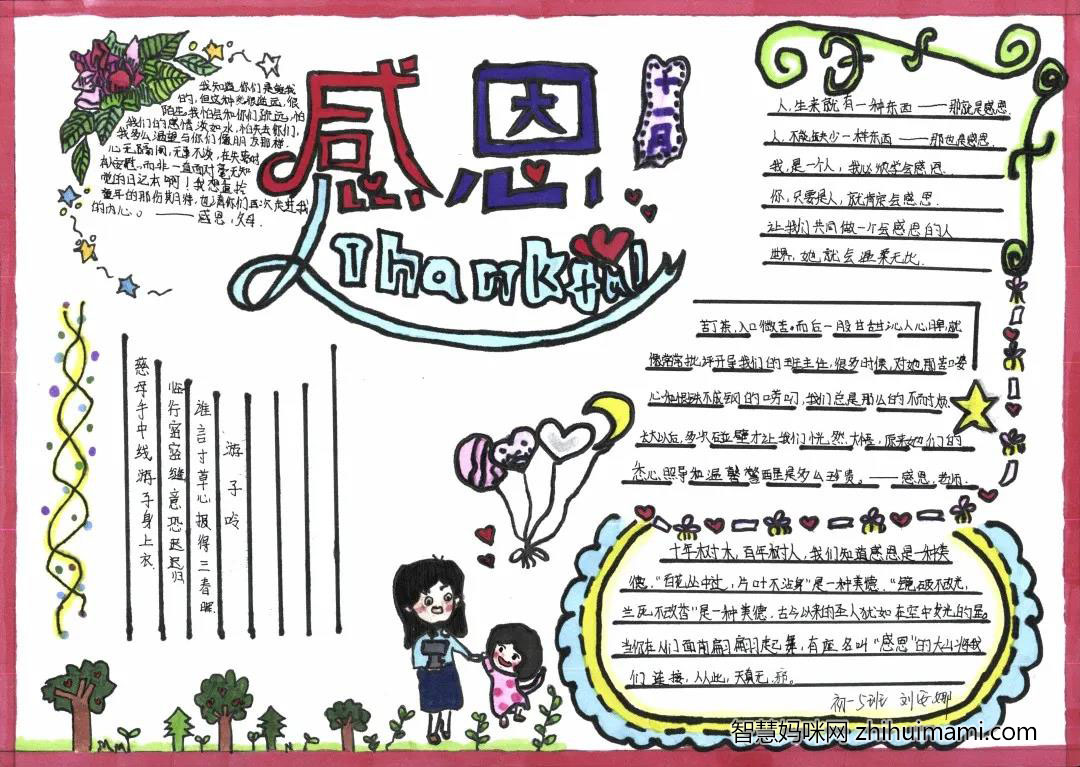 感恩
十一月
Thankful
我知道,你们是爱我
的,但这种光很遥远,很
陌生,我怕会和你们疏远,怕
我们的感情淡如水,怕失去你们,
我多么渴望与你们像朋友那样,
心无隔阂,无事不谈,在失落时
的安慰,而非一直面对毫无知
觉的日记本啊!我想重拾
童年的那份期待,也请你们再次走进我
的内心。——感恩,父母.
人,生来就有一种东西——那就是感恩.
人,不能缺少一种东西——那也是感恩.
我,是一个人,我必须学会感恩.
你,只要是人,就肯定会感恩.
让我们共同做一个会感恩的人
世界,她就会温柔无比.
苦丁茶,入口微苦。而后一股甘甜沁人心脾,就
像常常批评开导我们的班主任,很多时候,对她那苦口婆
心和恨铁不成钢的唠叨,我们总是那么的不耐烦.
长大以后,多次碰壁才让我们恍然大悟,原来她们的
悉心照导和温馨 是多么珍贵。——感恩,老师.
游子吟
慈母手中线 游子身上衣
临行密密缝 意恐迟迟归
谁言寸草心 报得三春晖
十年树木,百年树人,我们知道感恩是一种美
德."百花丛中过,片叶不沾身"是一种美德."镜破不改光,
兰瓦不改香"是一种美德.古今以来的圣人犹如在空中发光的星。
当你在人们面前翩翩起舞,有座名叫"感恩"的大山将我
们连接,从此,天真无邪。
初一5班 刘安娜
智慧妈咪网 zhihuimami.com